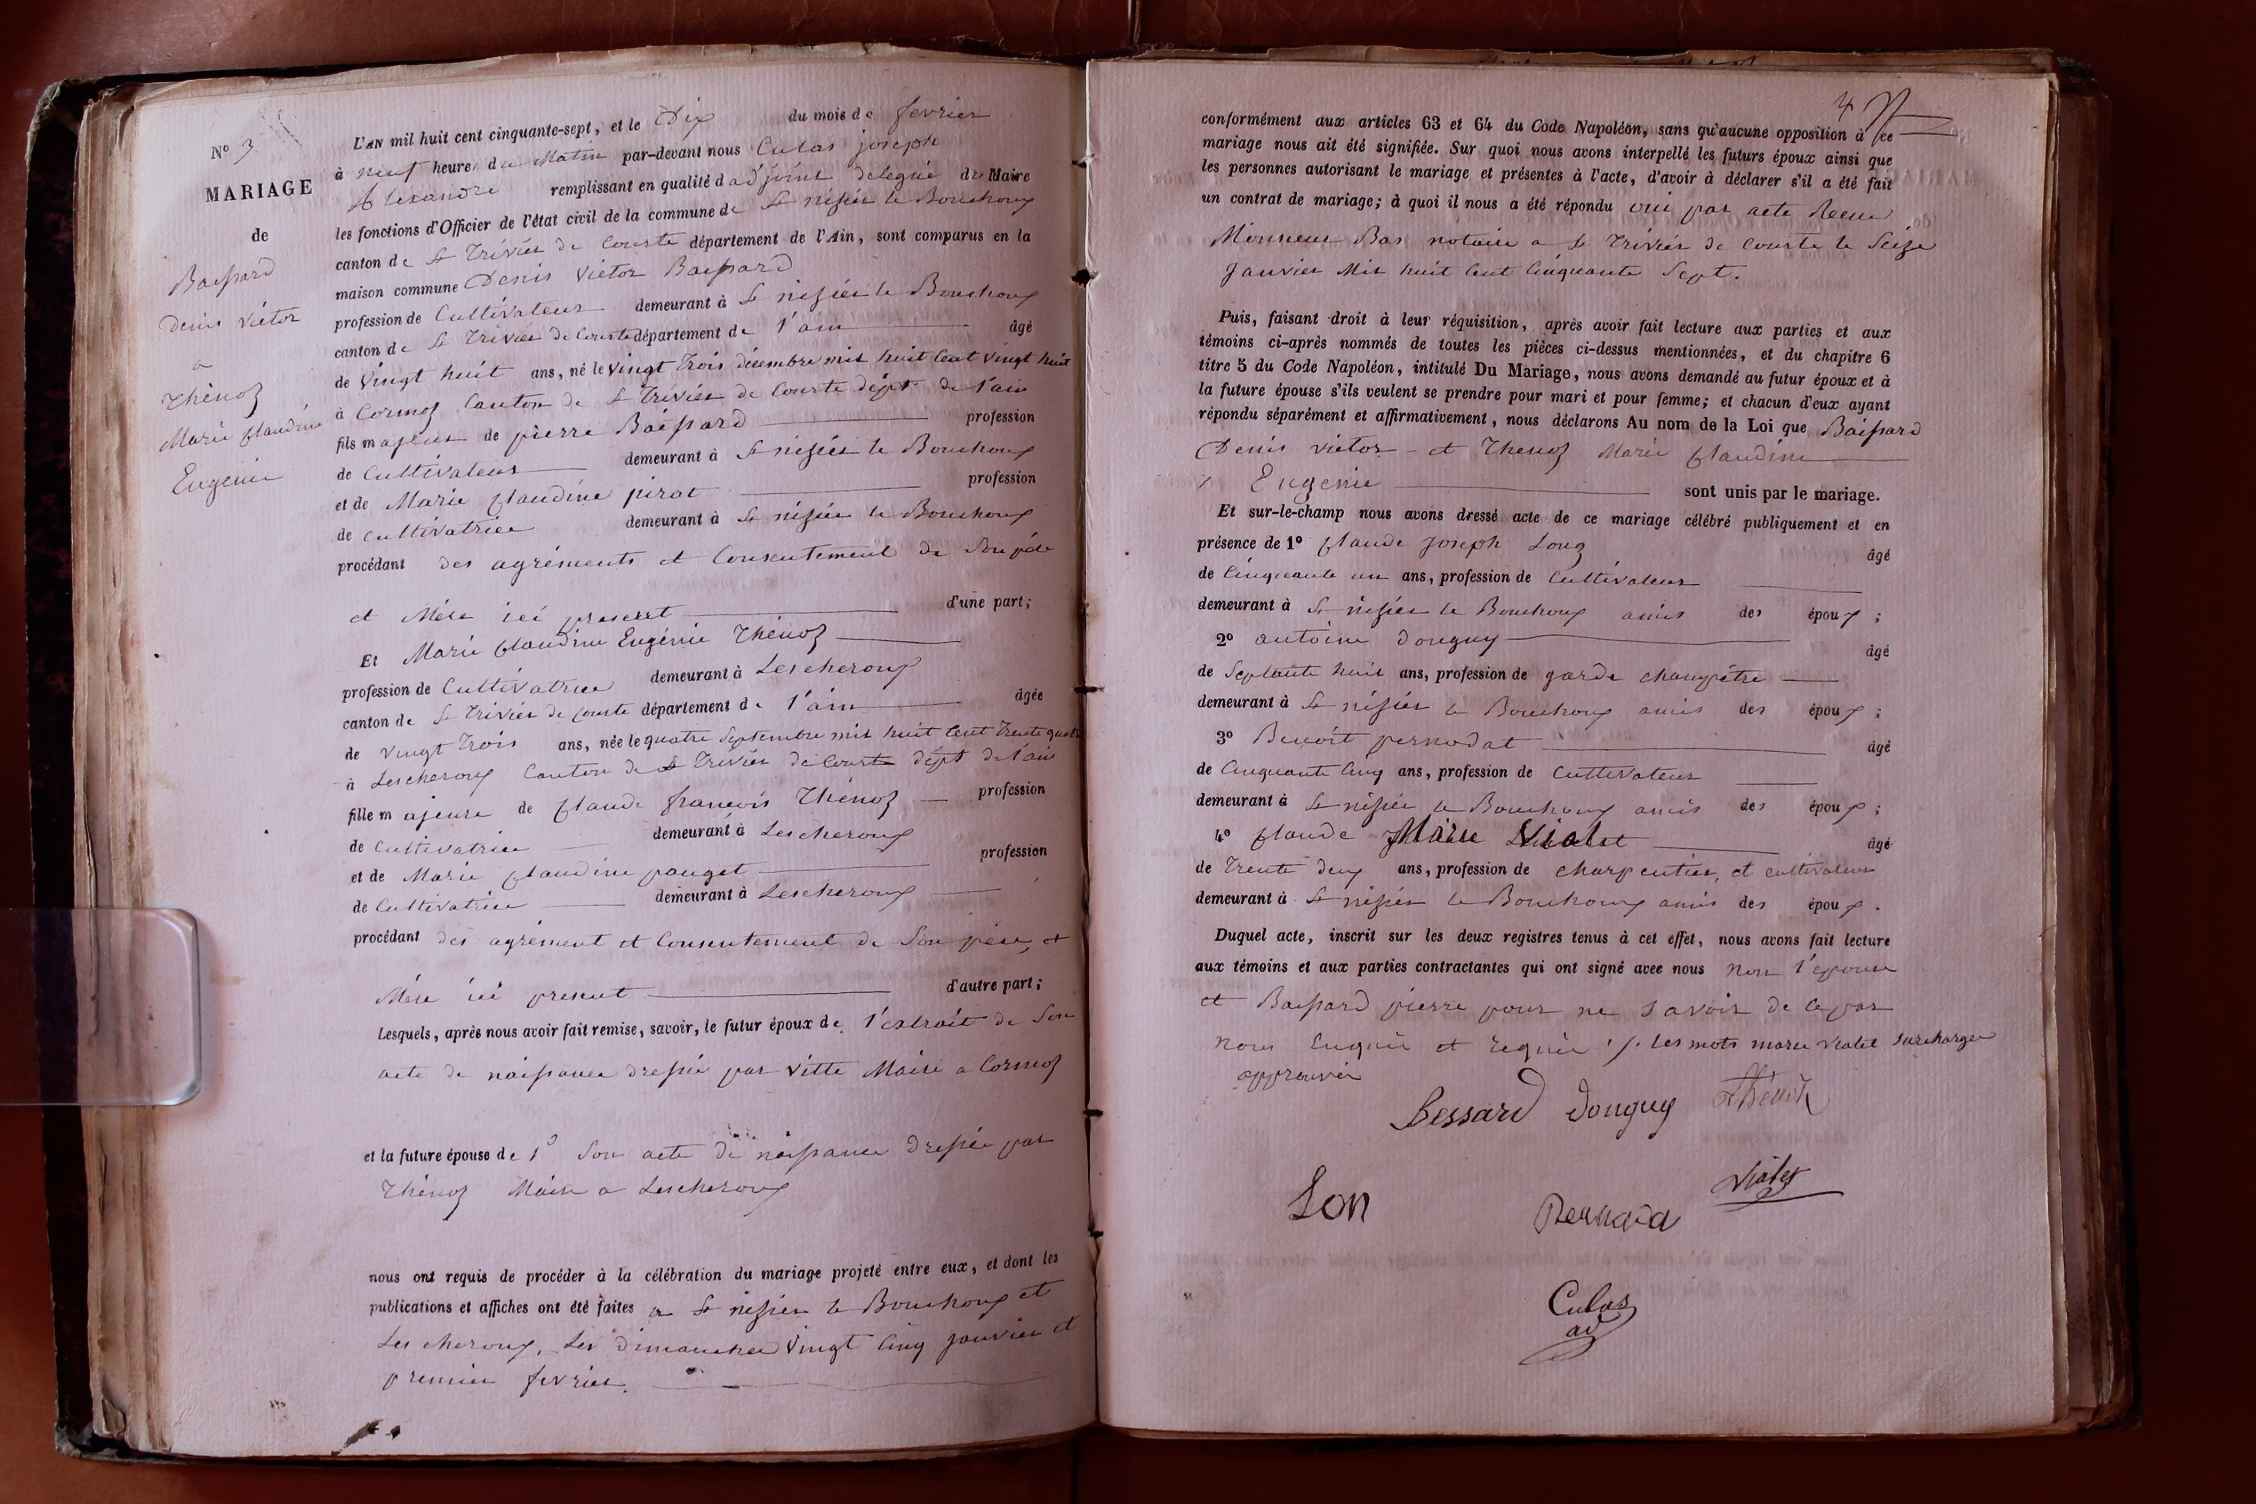 N° 3
MARIAGE
de
Baissard
Denis victor
a
Thénoz
Marie Claudine
Eugenie
L'AN mil huit cent cinquante-sept, et le Dix du mois de fevrier
à neuf heure du Matin par-devant nous Culas joseph
Alexandre remplissant en qualité d adjoint delegué du Maire
les fonctions d'Officier de l'état civil de la commune de St nizier le Bouchoux
canton de St Trivier de Courte département de l'Ain, sont comparus en la
maison commune Denis victor Baissard
profession de Cultivateur demeurant à St nizier le Bouchoux
canton de St Trivier de Courte département de l'ain âgé
de vingt huit ans, né le vingt Trois décembre mil huit Cent vingt huit
à Cormoz Canton de St Trivier de Courte dépt de l'ain
fils majeur de pierre Baissard profession
de Cultivateur demeurant à St nizier le Bouchoux
et de Marie Claudine pirat profession
de cultivatrice demeurant à St nizier le Bouchoux
procédant des agréments et Consentement de Son pére
et Mére ici present d'une part;
Et Marie Claudine Eugénie Thénoz
profession de Cultivatrice demeurant à Lescheroux
canton de St Trivier de Courte département de l'ain âgée
de vingt Trois ans, née le quatre Septembre mil huit Cent Trente quatre
à Lescheroux Canton de St Trivier de Courte dépt de l'ain
fille majeure de Claude francois Thénoz profession
de Cultivatrice demeurant à Lescheroux
et de Marie Claudine pauget profession
de Cultivatrice demeurant à Lescheroux
procédant des agrément et Consentement de Son pére et
Mére ici present d'autre part;
Lesquels, après nous avoir fait remise, savoir, le futur époux de l'extrait de Son
acte de naissance dressée par vitte Maire a Cormoz
et la future épouse de 1° Son acte de naissance dressée par
Thénoz Maire a Lescheroux
nous ont requis de procéder à la célébration du mariage projeté entre eux, et dont les
publications et affiches ont été faites a St nizier le Bouchoux et
Lescheroux, Les dimanches vingt Cinq janvier et
premier fevrier.
4
conformément aux articles 63 et 64 du Code Napoléon, sans qu'aucune opposition à ce
mariage nous ait été signifiée. Sur quoi nous avons interpellé les futurs époux ainsi que
les personnes autorisant le mariage et présentes à l'acte, d'avoir à déclarer s'il a été fait
un contrat de mariage; à quoi il nous a été répondu oui par acte Recue
Monsieur Bas notaire a St Trivier de Courte le Seize
Janvier Mil huit Cent Cinquante Sept.
Puis, faisant droit à leur réquisition, après avoir fait lecture aux parties et aux
témoins ci-après nommés de toutes les pièces ci-dessus mentionnées, et du chapitre 6
titre 5 du Code Napoléon, intitulé Du Mariage, nous avons demandé au futur époux et à
la future épouse s'ils veulent se prendre pour mari et pour femme; et chacun d'eux ayant
répondu séparément et affirmativement, nous déclarons Au nom de la Loi que Baissard
Denis victor et Thenoz Marie Claudine
Eugenie sont unis par le mariage.
Et sur-le-champ nous avons dressé acte de ce mariage célébré publiquement et en
présence de 1° Claude Joseph Long âgé
de Cinquante un ans, profession de Cultivateur
demeurant à St nizier le Bouchoux amis des époux;
2° antoine Donguy âgé
de Septante huit ans, profession de garde champétre
demeurant à St nizier le Bouchoux amis des époux;
3° Benoit pernodat âgé
de Cinquante Cinq ans, profession de Cultivateur
demeurant à St nizier le Bouchoux amis des époux;
4° Claude Marie Vialet âgé
de Trente deux ans, profession de charpentier, et cultivateur
demeurant à St nizier le Bouchoux amis des époux.
Duquel acte, inscrit sur les deux registres tenus à cet effet, nous avons fait lecture
aux témoins et aux parties contractantes qui ont signé avec nous non l'epouse
et Baissard pierre pour ne savoir de ce par
nous Enquis et requis ./. Les mots marie vialet surcharger
approuvér
Bessard Donguy Thénoz
Lon Vialet
Culas
adj